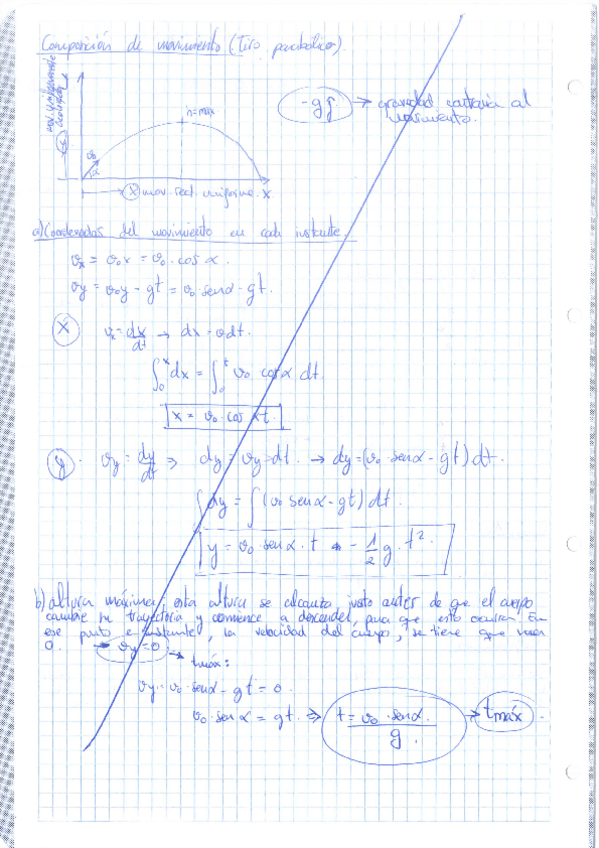 Composición de movimiento (Tiro parabólico).
-g ĵ → gravedad contraria al
movimiento.
h=max
v₀
α
X mov. rect. uniforme. x
a) Coordenadas del movimiento en cada instante.
vx = v₀x = v₀ · cos α.
vy = v₀y - gt = v₀ senα - gt.
X vx = dx/dt → dx = vdt.
∫₀ˣ dx = ∫₀ᵗ v₀ cosα dt.
x = v₀ · cos α t.
y. vy = dy/dt ⇒ dy = vy · dt. → dy = (v₀ senα - gt) dt.
∫ dy = ∫ (v₀ senα - gt) dt.
y = v₀ senα · t - 1/2 g · t².
b) altura máxima, esta altura se alcanza justo antes de que el cuerpo
cambie su trayectoria y comience a descender, para que esto ocurra. En
ese punto e instante, la velocidad del cuerpo, se tiene que hacer
0. → vy = 0 → tmáx:
vy = v₀ · senα - gt = 0.
v₀ · sen α = gt. ⇒ t = v₀ · senα / g. → tmáx.